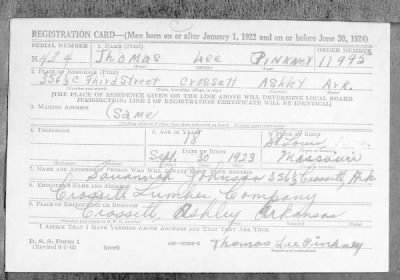 REGISTRATION CARD—(Men born on or after January 1, 1922 and on or before June 30, 1924)
SERIAL NUMBER 1. NAME (Print) ORDER NUMBER
N434 Thomas Lee Pinkney 11995
(First) (Middle) (Last)
2. PLACE OF RESIDENCE (Print)
356½C Third Street Crossett Ashley Ark.
[THE PLACE OF RESIDENCE GIVEN ON THE LINE ABOVE WILL DETERMINE LOCAL BOARD
JURISDICTION; LINE 2 OF REGISTRATION CERTIFICATE WILL BE IDENTICAL]
3. MAILING ADDRESS
(Same)
4. TELEPHONE 5. AGE IN YEARS 6. PLACE OF BIRTH
18 St. Louis
DATE OF BIRTH
Sept. 30 1923 Missouri
7. NAME AND ADDRESS OF PERSON WHO WILL ALWAYS KNOW YOUR ADDRESS
Savannah Johnson 356½ Crossett, Ark
8. EMPLOYER'S NAME AND ADDRESS
Crossett Lumber Company
9. PLACE OF EMPLOYMENT OR BUSINESS
Crossett, Ashley Arkansas
I AFFIRM THAT I HAVE VERIFIED ABOVE ANSWERS AND THAT THEY ARE TRUE.
D. S. S. Form 1
(over) Thomas Lee Pinkney